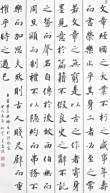 蓋文章經國之大業不朽之盛事年壽有時
而盡榮樂止乎其身二者必至之常期未
若文章之無窮是以古之作者寄身於翰
墨見意於篇籍不假良史之辭不託飛
馳之勢而聲名自傳於後故西伯幽而演易
周旦顯而制禮不以隱約而弗務不以康
樂而加思夫然則古人賤尺璧而重寸陰
懼乎時之過已